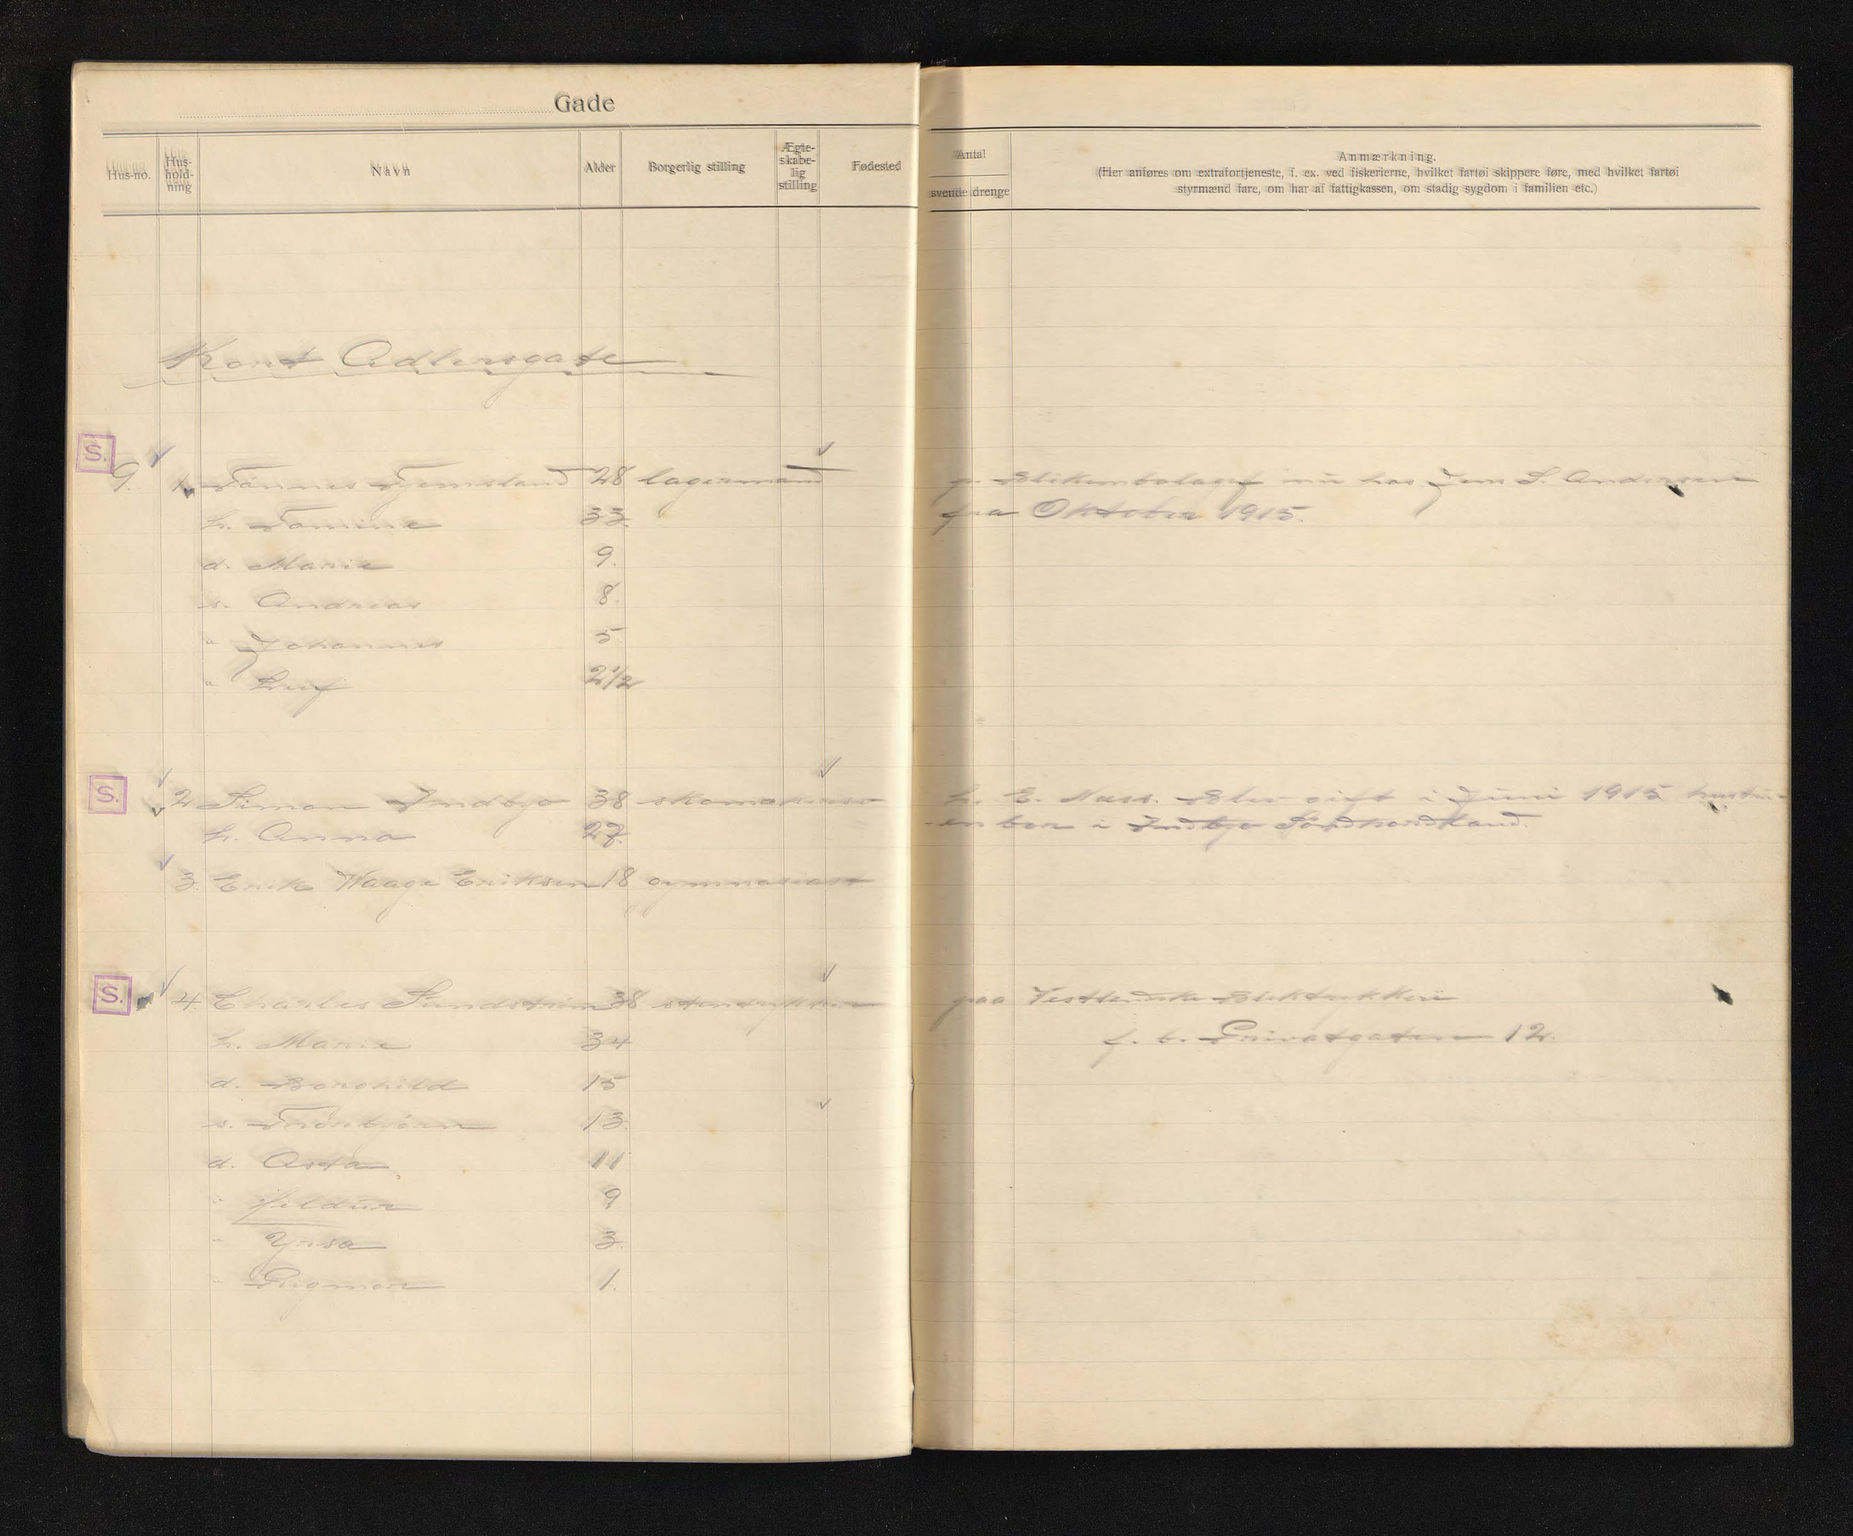 Gade
Hus-no.
Hus-
hold-
ning
Navn
Alder
Borgerlig stilling
Ægte-
skabe-
lig
stilling
Fødested
Antal
svende drenge
Anmærkning.
(Her anføres om extrafortjeneste, f. ex. ved fiskerierne, hvilket fartøi skippere føre, med hvilket fartøi
styrmænd fare, om har af fattigkassen, om stadig sygdom i familien etc.)
Kort Adlersgate
S.
9. 1. Tönnes Tjemsland 28 lagermand nu hos Jens S. Andersen
h. Tomine 33. fra Oktober 1915.
d. Marie 9.
s. Andreas 8.
" Johannes 5
" Leif 2½
S.
2 Simon Indbjo 38 skomakersv h. E. Næss. Blev gift i Juni 1915 hustru-
h. Anna 27. en bor i Söndhordland.
3. Erik Waage Eriksen 18 gymnasiast
S.
4. Charles Sundström 38 stentrykker paa Vestlandske Bliktrykkeri
h. Marie 34 f. b. Privatgaten 12.
d. Borghild 15
s. 13.
d. Asta 11
" Hildur 9
" Yrsa 3.
" Dagmar 1.